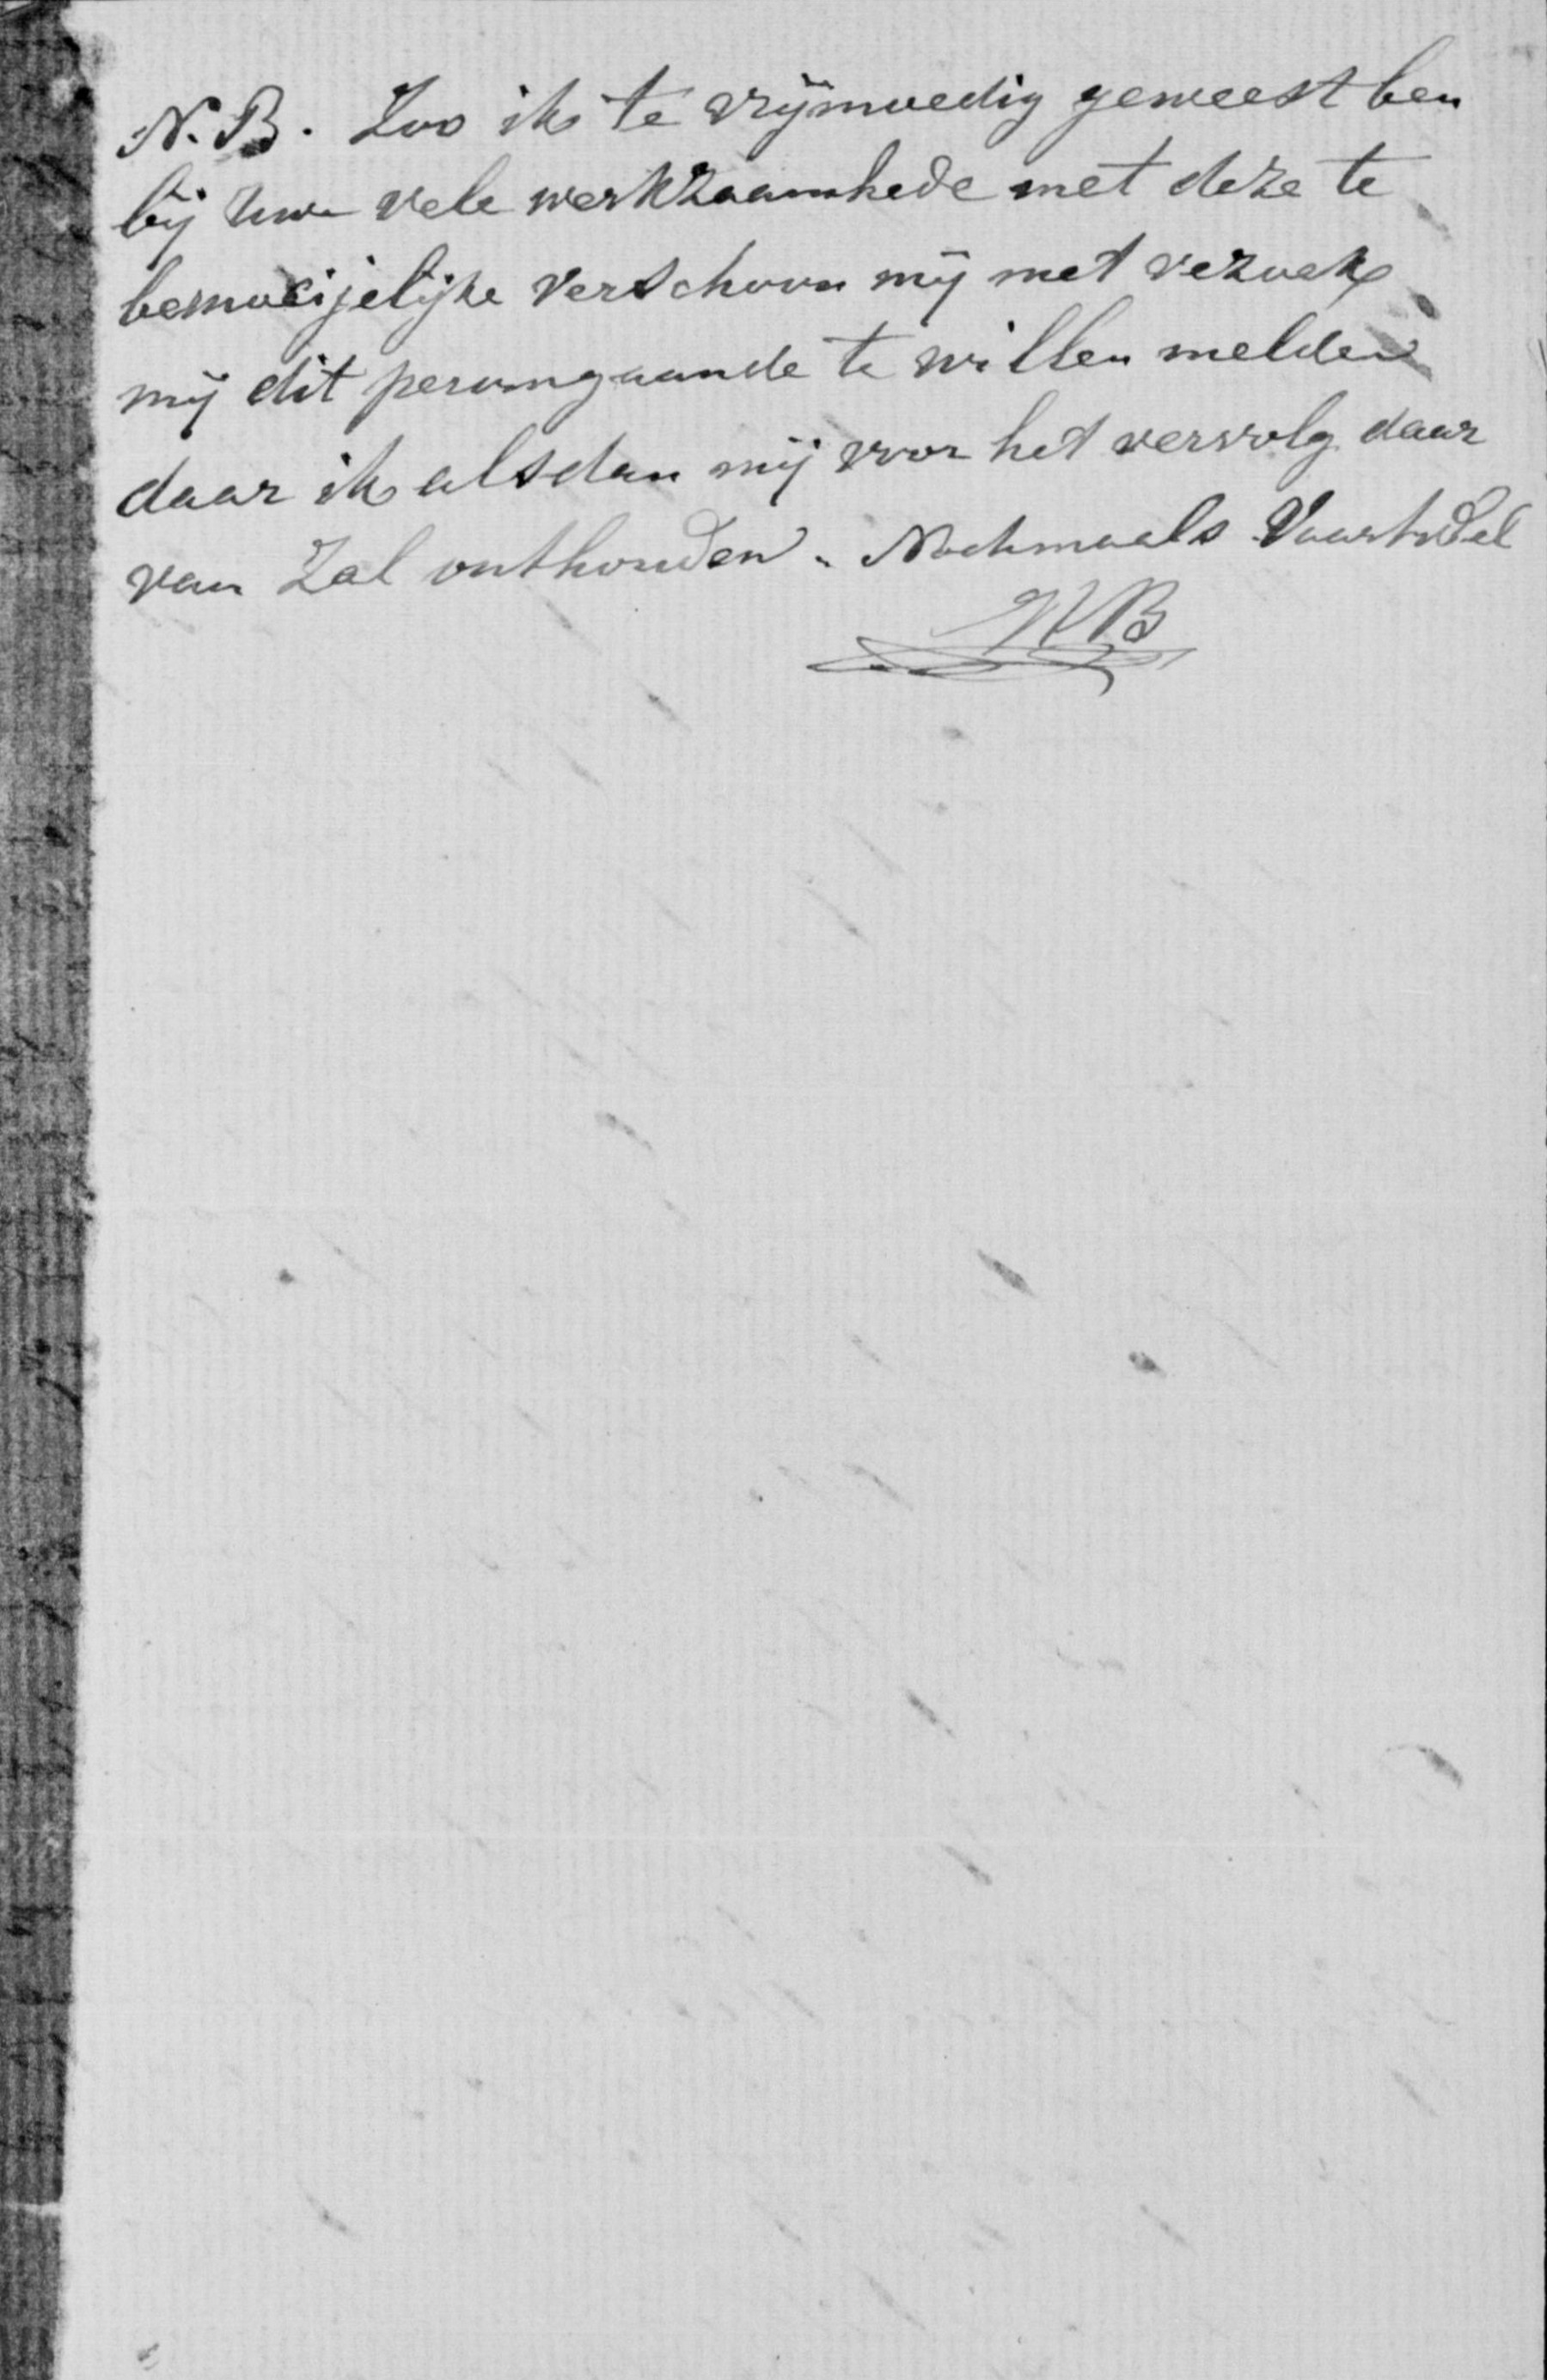 N.B. Zoo ik te vrijmoedig geweest ben
bij uwe vele werkzaamhede met deze te
bemoeijelijke verschoon mij met verzoek
mij dit peromgaande te willen melden
daar ik alsdan mij voor het vervolg daar
van Zal onthouden. Nochmaals Vaartwel
HB